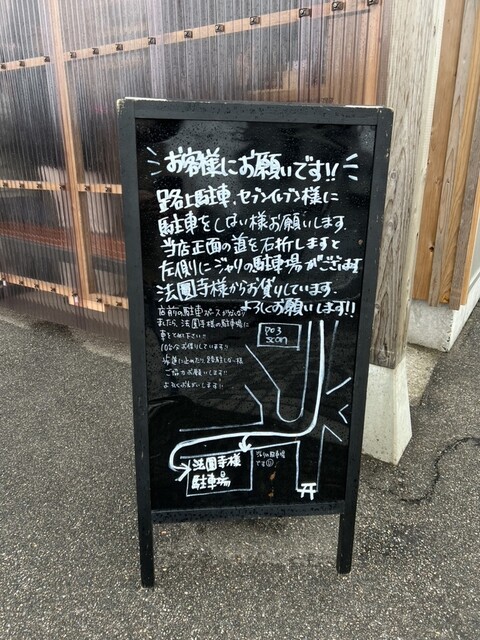 お客様にお願いです!!
路上駐車、セブンイレブン様に
駐車をしない様お願いします.
当店正面の道を右折しますと
左側にジャリの駐車場がございます
法圓寺様からお借りしています.
よろしくお願いします!!
店前の駐車スペースが
ましたら、法圓寺様の駐車場に
車をとめて下さい!!
10台分お借りしています!!
歩道に止めたり、路駐しない様
ご協力お願いします!!
よろしくおねがいします!!
法圓寺様
駐車場
ジャリの駐車場
です